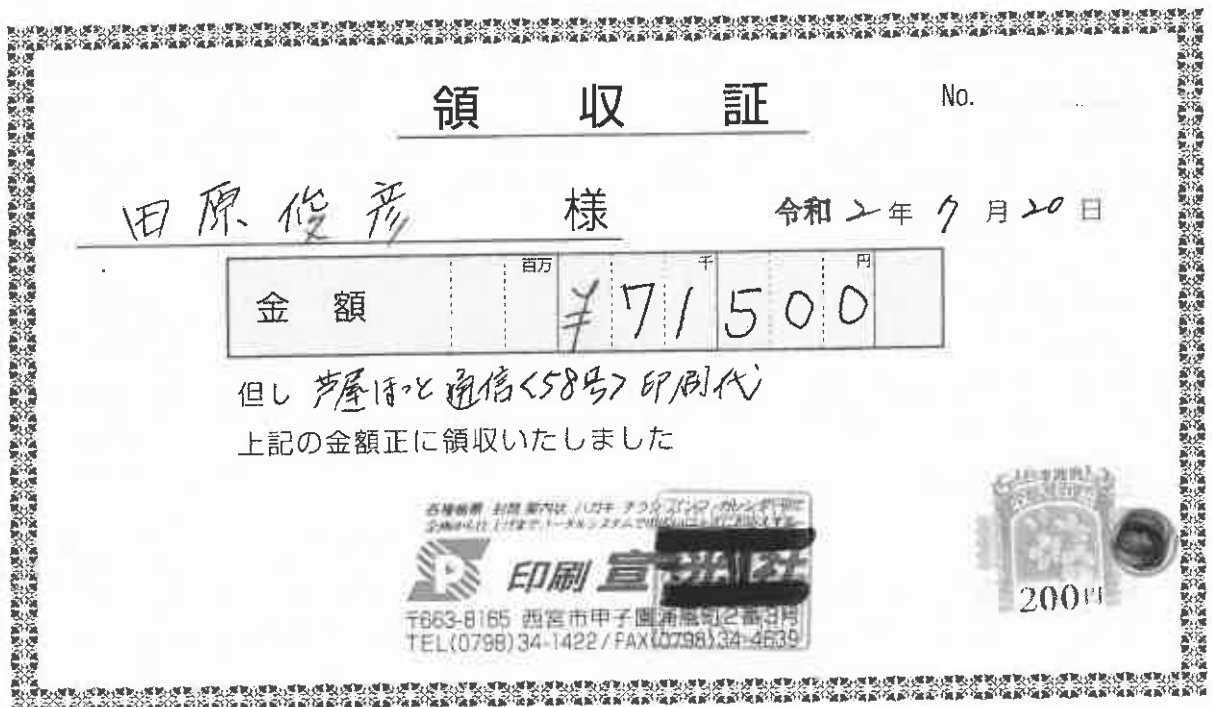 領収証
No.
田原俊彦 様
令和2年7月20日
金額 百万 千 円 ¥71500
但し 芦屋ほっと通信<58号>印刷代
上記の金額正に領収いたしました
各種帳票 封筒 案内状 ハガキ チラシ パンフ カレンダー
印刷 宣
〒663-8165 西宮市甲子園浦風町2番3号
TEL(0798)34-1422/FAX(0798)34-4639
200円